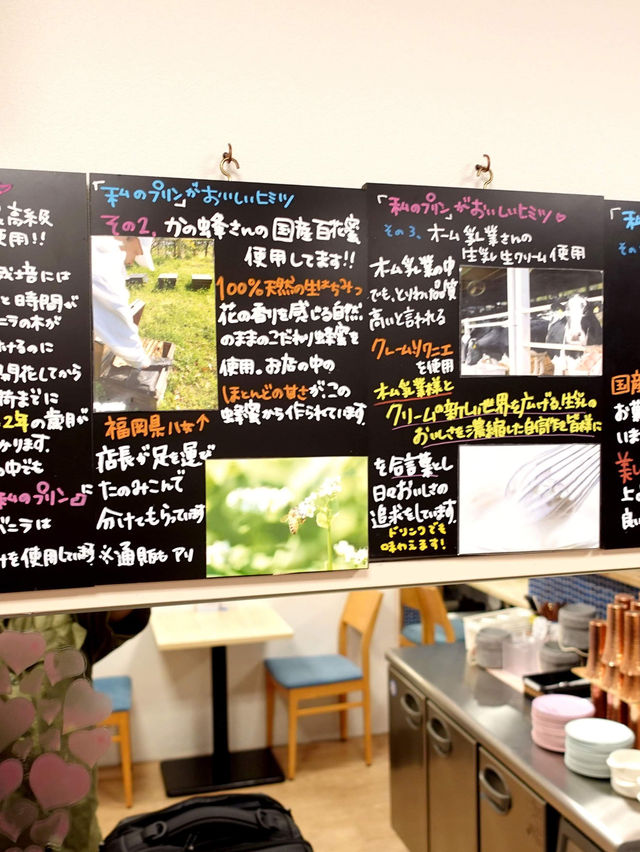 高級
使用!!
には
と時間が
バニラの木が
けるのに
開花してから
荷までに
2年の歳月が
かります。
中でも
私のプリンに
バニラは
を使用しています
「私のプリン」がおいしいヒミツ
その2、かの蜂さんの国産百花蜜
使用してます!!
100%天然の生はちみつ
花の香りを感じる自然
のままのこだわり蜂蜜を
使用。お店の中の
ほとんどの甘さが、この
蜂蜜から作られています。
福岡県八女↑
店長が足を運び
たのみこんで
分けてもらっています
※通販もアリ
「私のプリン」がおいしいヒミツ♡
その3、オーム乳業さんの
生乳と生クリーム使用
オーム乳業の中
でも、とりわけ品質
高いと言われる
クレームソワニエ
を使用
オーム乳業様と
クリームの新しい世界を広げる、生乳の
おいしさを濃縮した自信作を皆様に
を合言葉とし
日々おいしさの
追求をしています。
ドリンクでも
味わえます!
「私
その
国産
お
いま
美し
上
良い